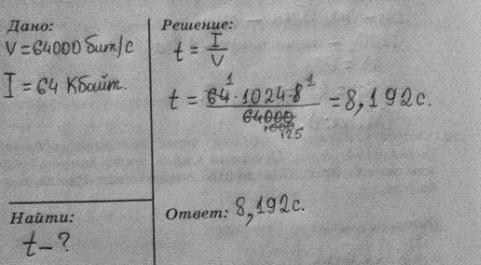 Дано:
V = 64000 бит/с
I = 64 Кбайт.
Найти:
t - ?
Решение:
t = I/V
t = 64 · 1024 · 8 / 64000 = 8,192 с.
1 1
1000
125
Ответ: 8,192 с.